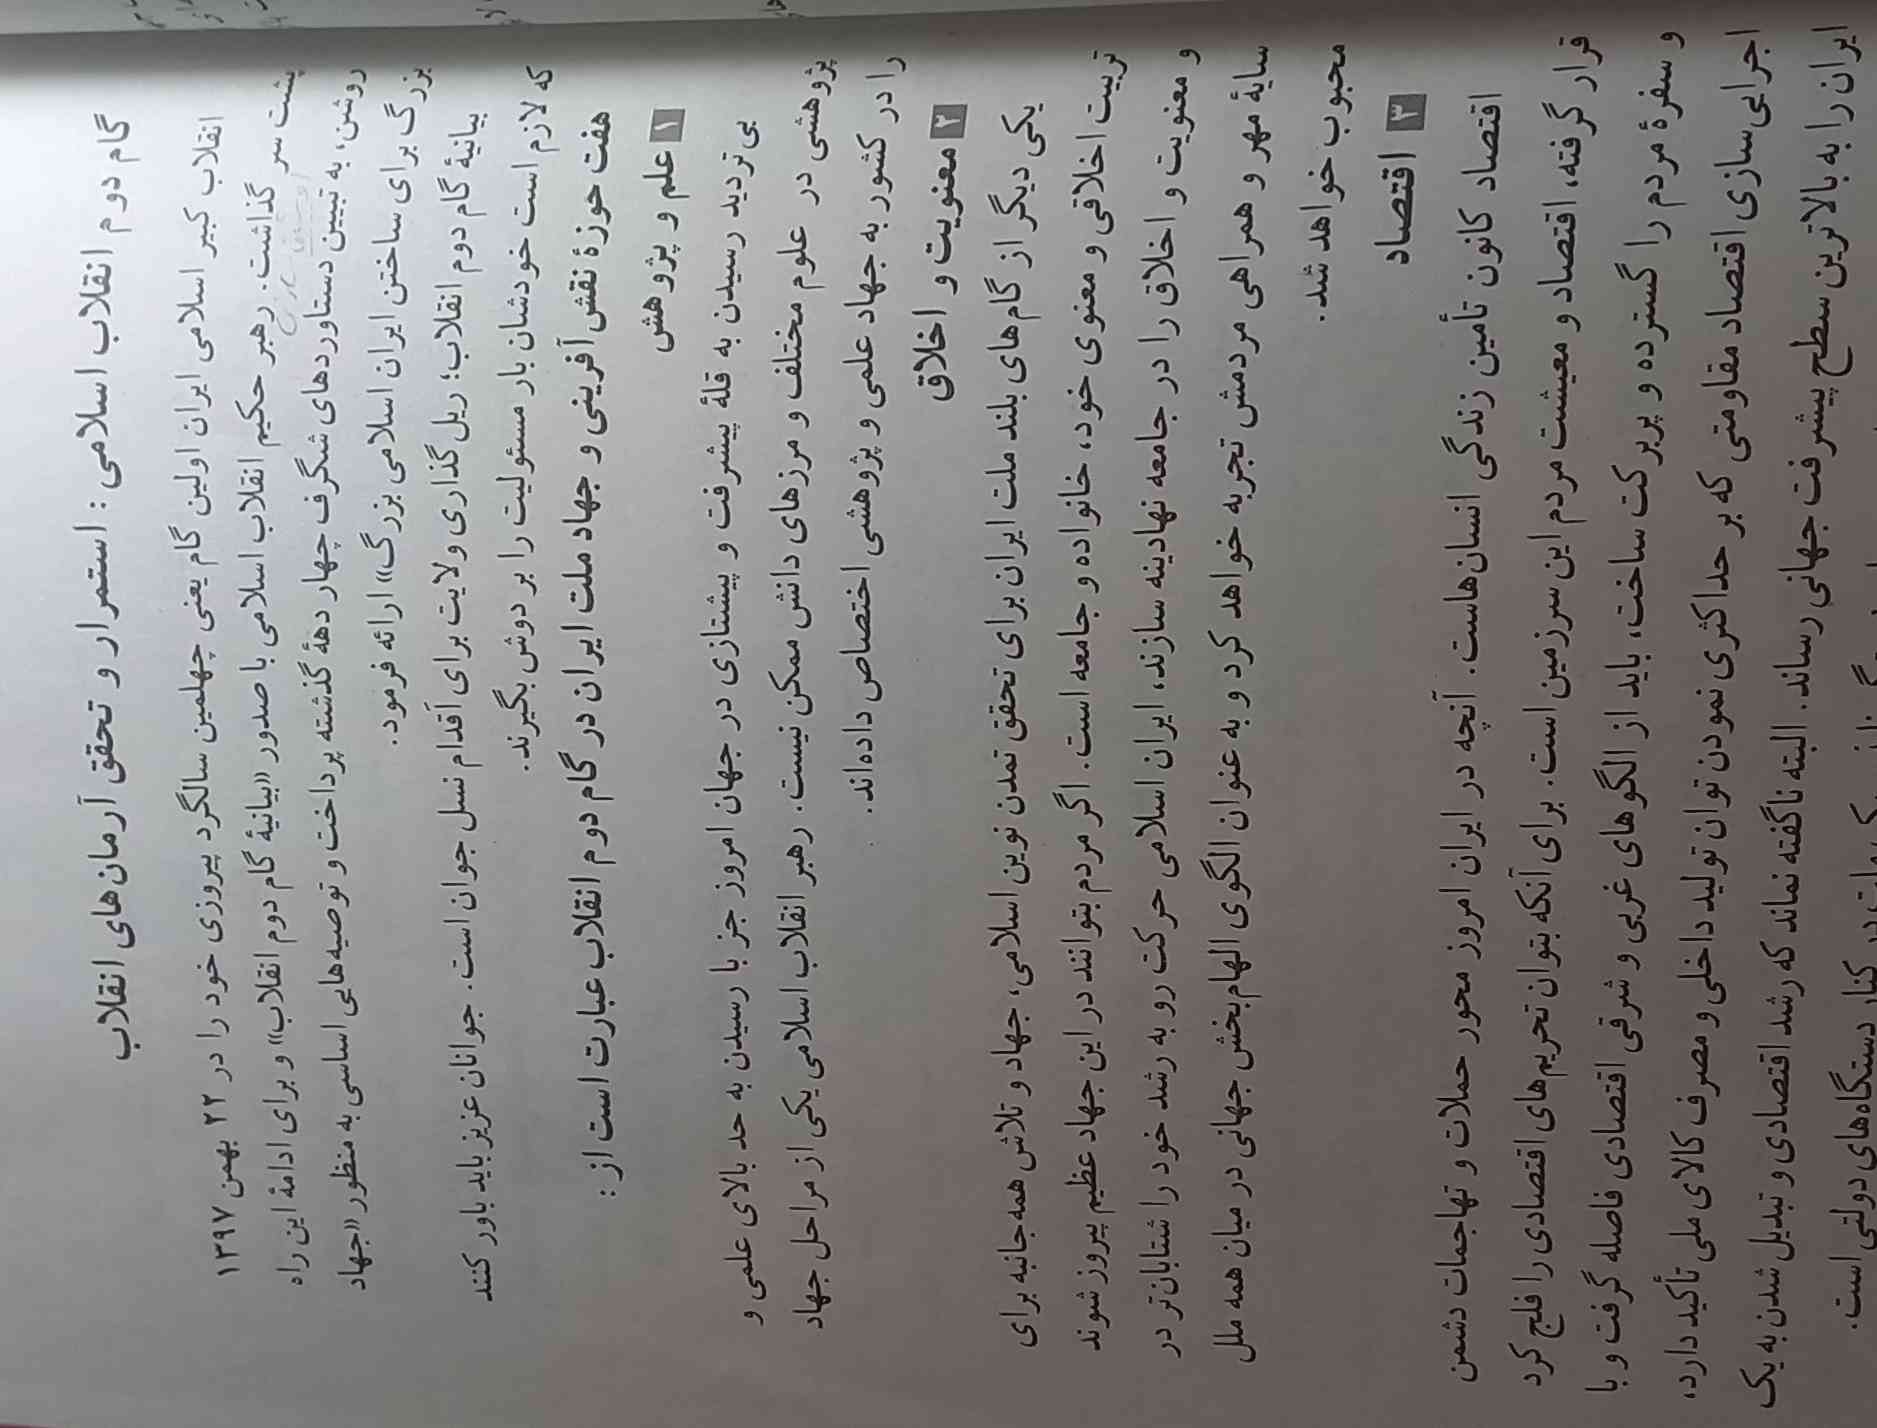 گام دوم انقلاب اسلامی : استمرار و تحقق آرمان‌های انقلاب
انقلاب کبیر اسلامی ایران اولین گام یعنی چهلمین سالگرد پیروزی خود را در ۲۲ بهمن ۱۳۹۷
پشت سر گذاشت. رهبر حکیم انقلاب اسلامی با صدور «بیانیهٔ گام دوم انقلاب» و برای ادامهٔ این راه
روشن، به تبیین دستاوردهای شگرف چهار دههٔ گذشته پرداخت و توصیه‌هایی اساسی به منظور «جهاد
بزرگ برای ساختن ایران اسلامی بزرگ» ارائه فرمود.
بیانیهٔ گام دوم انقلاب؛ ریل‌گذاری ولایت برای اَقدام نسل جوان است. جوانان عزیز باید باور کنند
که لازم است خودشان بار مسئولیت را بر دوش بگیرند.
هفت حوزهٔ نقش‌آفرینی و جهاد ملت ایران در گام دوم انقلاب عبارت است از :
۱ علم و پژوهش
بی‌تردید رسیدن به قلهٔ پیشرفت و پیشتازی در جهان امروز جز با رسیدن به حد بالای علمی و
پژوهشی در علوم مختلف و مرزهای دانش ممکن نیست. رهبر انقلاب اسلامی یکی از مراحل جهاد
را در کشور به جهاد علمی و پژوهشی اختصاص داده‌اند.
۲ معنویت و اخلاق
یکی دیگر از گام‌های بلند ملت ایران برای تحقق تمدن نوین اسلامی، جهاد و تلاش همه‌جانبه برای
تربیت اخلاقی و معنوی خود، خانواده و جامعه است. اگر مردم بتوانند در این جهاد عظیم پیروز شوند
و معنویت و اخلاق را در جامعه نهادینه سازند، ایران اسلامی حرکت رو به رشد خود را شتابان‌تر در
سایهٔ مهر و همراهی مردمش تجربه خواهد کرد و به عنوان الگوی الهام‌بخش جهانی در میان همه ملل
محبوب خواهد شد.
۳ اقتصاد
اقتصاد کانون تأمین زندگی انسان‌هاست. آنچه در ایران امروز محور حملات و تهاجمات دشمن
قرار گرفته، اقتصاد و معیشت مردم این سرزمین است. برای آنکه بتوان تحریم‌های اقتصادی را فلج کرد
و سفرهٔ مردم را گسترده و پربرکت ساخت، باید از الگوهای غربی و شرقی اقتصادی فاصله گرفت و با
اجرایی‌سازی اقتصاد مقاومتی که بر حداکثری نمودن توان تولید داخلی و مصرف کالای ملی تأکید دارد،
ایران را به بالاترین سطح پیشرفت جهانی رساند. البته ناگفته نماند که رشد اقتصادی و تبدیل شدن به یک
کنار دستگاه‌های دولتی است.